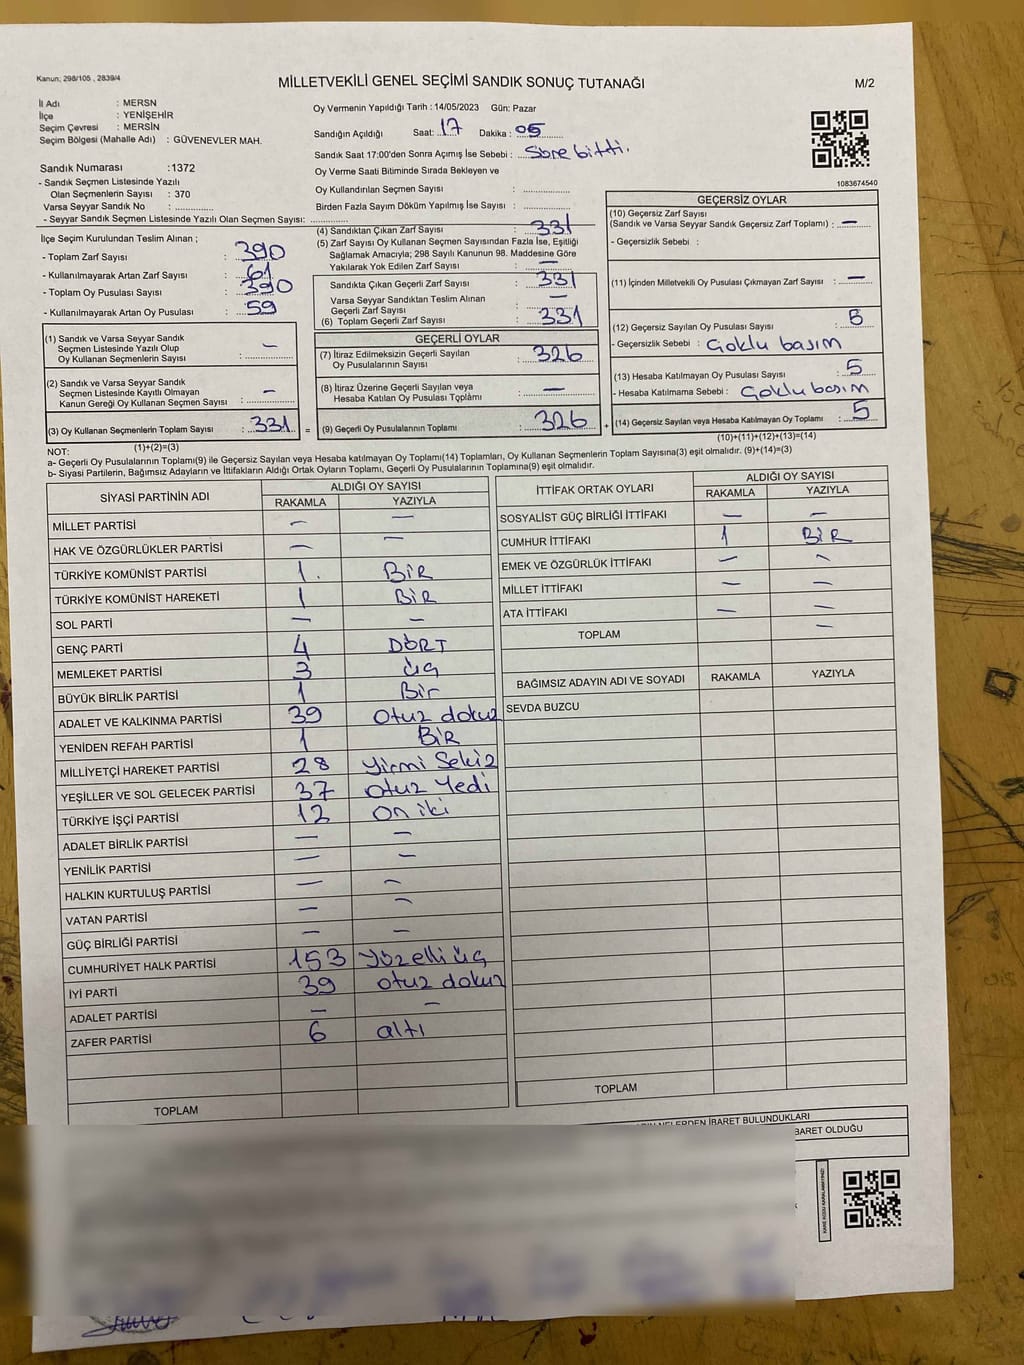 Kanun; 298/105 , 2839/4
MİLLETVEKİLİ GENEL SEÇİMİ SANDIK SONUÇ TUTANAĞI
M/2
İl Adı : MERSN
İlçe : YENİŞEHİR
Seçim Çevresi : MERSİN
Seçim Bölgesi (Mahalle Adı) : GÜVENEVLER MAH.
Oy Vermenin Yapıldığı Tarih : 14/05/2023 Gün: Pazar
Sandığın Açıldığı Saat: 17 Dakika : 05
Sandık Saat 17:00'den Sonra Açımış İse Sebebi : Süre bitti.
Oy Verme Saati Bitiminde Sırada Bekleyen ve
Oy Kullandırılan Seçmen Sayısı :
Birden Fazla Sayım Döküm Yapılmış İse Sayısı :
1083674540
Sandık Numarası :1372
- Sandık Seçmen Listesinde Yazılı
Olan Seçmenlerin Sayısı : 370
Varsa Seyyar Sandık No :
- Seyyar Sandık Seçmen Listesinde Yazılı Olan Seçmen Sayısı:
İlçe Seçim Kurulundan Teslim Alınan ;
- Toplam Zarf Sayısı : 390
- Kullanılmayarak Artan Zarf Sayısı : 61
- Toplam Oy Pusulası Sayısı : 390
- Kullanılmayarak Artan Oy Pusulası : 59
(1) Sandık ve Varsa Seyyar Sandık
Seçmen Listesinde Yazılı Olup
Oy Kullanan Seçmenlerin Sayısı : –
(2) Sandık ve Varsa Seyyar Sandık
Seçmen Listesinde Kayıtlı Olmayan
Kanun Gereği Oy Kullanan Seçmen Sayısı : –
(3) Oy Kullanan Seçmenlerin Toplam Sayısı : 331 =
(1)+(2)=(3)
(4) Sandıktan Çıkan Zarf Sayısı : 331
(5) Zarf Sayısı Oy Kullanan Seçmen Sayısından Fazla İse, Eşitliği
Sağlamak Amacıyla; 298 Sayılı Kanunun 98. Maddesine Göre
Yakılarak Yok Edilen Zarf Sayısı : –
Sandıkta Çıkan Geçerli Zarf Sayısı : 331
Varsa Seyyar Sandıktan Teslim Alınan
Geçerli Zarf Sayısı : –
(6) Toplam Geçerli Zarf Sayısı : 331
GEÇERLİ OYLAR
(7) İtiraz Edilmeksizin Geçerli Sayılan
Oy Pusulalarının Sayısı : 326
(8) İtiraz Üzerine Geçerli Sayılan veya
Hesaba Katılan Oy Pusulası Toplamı : –
(9) Geçerli Oy Pusulalarının Toplamı : 326 +
GEÇERSİZ OYLAR
(10) Geçersiz Zarf Sayısı
(Sandık ve Varsa Seyyar Sandık Geçersiz Zarf Toplamı) : –
- Geçersizlik Sebebi :
(11) İçinden Milletvekili Oy Pusulası Çıkmayan Zarf Sayısı : –
(12) Geçersiz Sayılan Oy Pusulası Sayısı :
- Geçersizlik Sebebi : Çoklu basım
(13) Hesaba Katılmayan Oy Pusulası Sayısı : 5
- Hesaba Katılmama Sebebi : Çoklu basım
(14) Geçersiz Sayılan veya Hesaba Katılmayan Oy Toplamı : 5
(10)+(11)+(12)+(13)=(14)
NOT:
a- Geçerli Oy Pusulalarının Toplamı(9) ile Geçersiz Sayılan veya Hesaba katılmayan Oy Toplamı(14) Toplamları, Oy Kullanan Seçmenlerin Toplam Sayısına(3) eşit olmalıdır. (9)+(14)=(3)
b- Siyasi Partilerin, Bağımsız Adayların ve İttifakların Aldığı Ortak Oyların Toplamı, Geçerli Oy Pusulalarının Toplamına(9) eşit olmalıdır.
SİYASİ PARTİNİN ADI ALDIĞI OY SAYISI
RAKAMLA YAZIYLA
MİLLET PARTİSİ – –
HAK VE ÖZGÜRLÜKLER PARTİSİ – –
TÜRKİYE KOMÜNİST PARTİSİ 1. BİR
TÜRKİYE KOMÜNİST HAREKETİ 1 BİR
SOL PARTİ – –
GENÇ PARTİ 4 DÖRT
MEMLEKET PARTİSİ 3 üç
BÜYÜK BİRLİK PARTİSİ 1 Bir
ADALET VE KALKINMA PARTİSİ 39 otuz dokuz
YENİDEN REFAH PARTİSİ 1 BİR
MİLLİYETÇİ HAREKET PARTİSİ 28 Yirmi Sekiz
YEŞİLLER VE SOL GELECEK PARTİSİ 37 otuz Yedi
TÜRKİYE İŞÇİ PARTİSİ 12 on iki
ADALET BİRLİK PARTİSİ – –
YENİLİK PARTİSİ – –
HALKIN KURTULUŞ PARTİSİ – –
VATAN PARTİSİ – –
GÜÇ BİRLİĞİ PARTİSİ – –
CUMHURİYET HALK PARTİSİ 153 Yüzelli üç
İYİ PARTİ 39 otuz dokuz
ADALET PARTİSİ – –
ZAFER PARTİSİ 6 altı
TOPLAM
İTTİFAK ORTAK OYLARI ALDIĞI OY SAYISI
RAKAMLA YAZIYLA
SOSYALİST GÜÇ BİRLİĞİ İTTİFAKI – –
CUMHUR İTTİFAKI 1 BİR
EMEK VE ÖZGÜRLÜK İTTİFAKI – –
MİLLET İTTİFAKI – –
ATA İTTİFAKI – –
TOPLAM –
BAĞIMSIZ ADAYIN ADI VE SOYADI RAKAMLA YAZIYLA
SEVDA BUZCU
TOPLAM
NELERDEN İBARET BULUNDUKLARI
BARET OLDUĞU